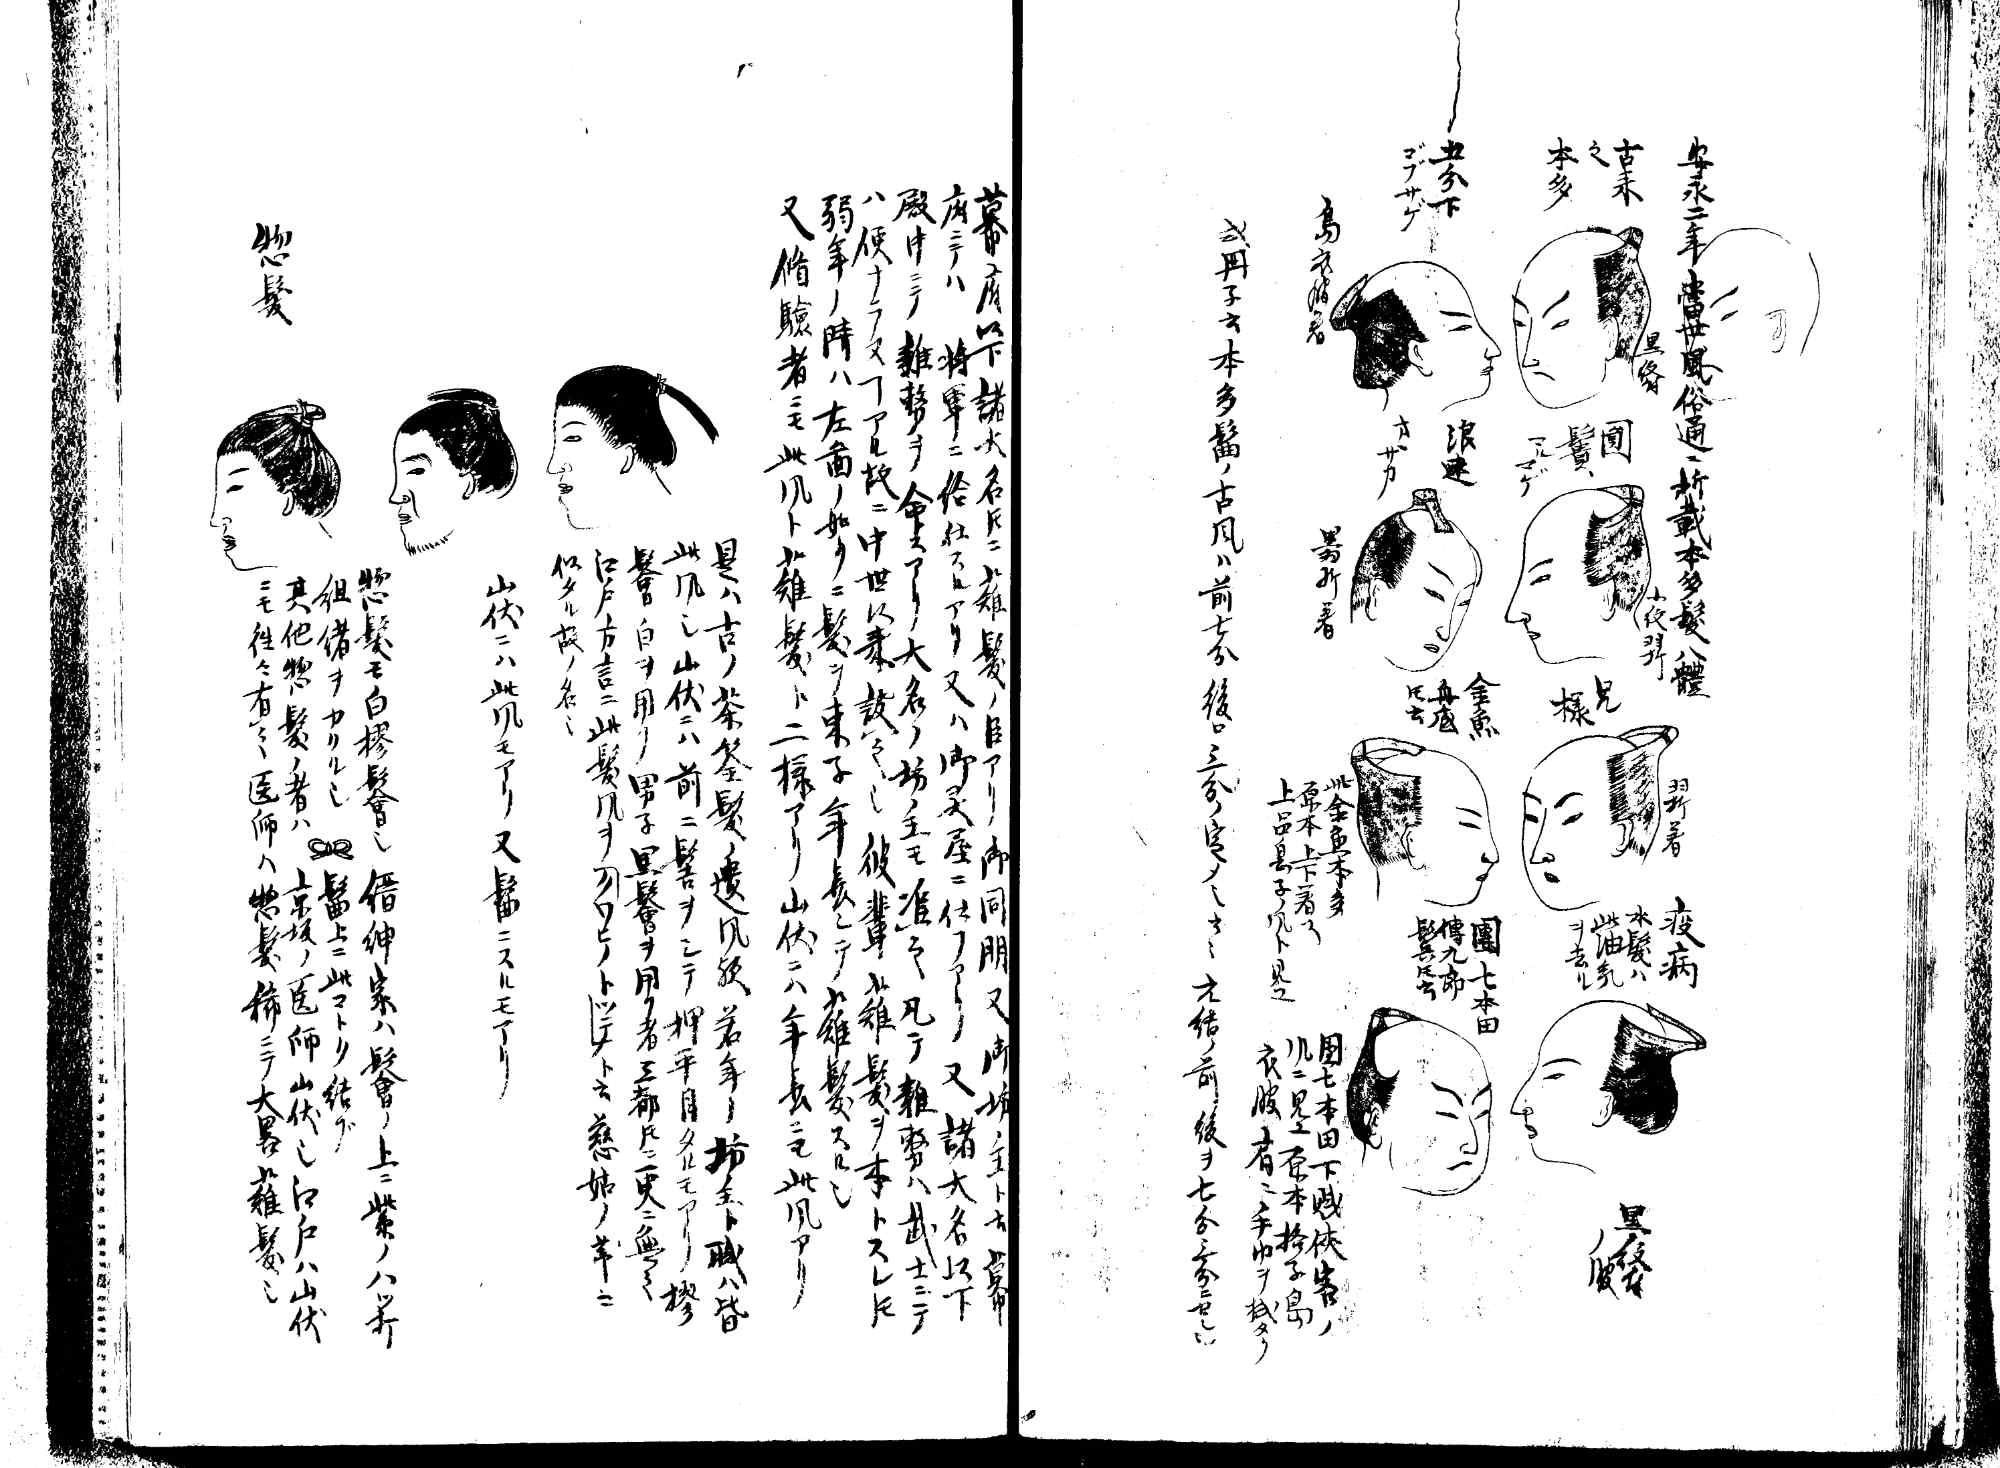 安永二年當世風俗通ニ所載本多髪八體
古来
之
本多
黒絽
五分下
ゴブサゲ
島衣服着
圓
髷
マルマゲ
浪速
ヲザカ
兄
様
金魚
羽折着
此金魚本多
原本上下着
上品息子風ト見ユ
疫病
本髪ハ
此油気
ヲ去ル
團七本田
傳九郎
團七本田下賎侠客ノ
風ニ見ユ原本格子島
衣服肩ニ手巾ヲ
或冊子云本多髷ノ古風ハ前七分後ロ三分ノ定メ元結前後ヲ七分三分ニ
幕府以下諸大名トモニ薙髪ノ臣アリ御同朋又御坊主ト云幕
府ニテハ将軍ニ給仕スルアリ又ハ御霊屋ニ仕フアリ又諸大名以下
殿中ニテ雑務ヲ命スアリ大名ノ坊主モ准之凡テ雑務ハ武士ニテ
ハ便ナラヌコトアル故ニ中世以来設之也彼輩薙髪ヲ本トスレトモ
弱年ノ時ハ左図ノ如クニ髪シ東子年長シテ薙髪スル也
又脩驗者ニモ此風ト薙髪ト二様アリ山伏ニハ年長ニモ此風アリ
是ハ古ノ茶筌髪ノ遺風歟若年ノ坊主ト職ハ皆
此風也山伏ニハ前ニ髻ヲシテ押平目タルモアリ樛
髻白ヲ用フ男子黒髻ヲ用フ者三都トモニ更ニ無之
江戸方言ニ此髪風ヲクワヒノトツテト云慈姑ノ芽ニ
似タル故ノ名也
山伏ニハ此風モアリ又髷ニスルモアリ
惣髪
惣髪モ白樛髻也縉紳家ハ髻ノ上ニ紫ノ八ツ折
組緒ヲカクル也髷上ニ此マトク結ブ
其他惣髪ノ者ハ京坂ノ医師山伏也江戸ハ山伏
ニモ往々有之医師ハ惣髪稀ニテ大畧薙髪也